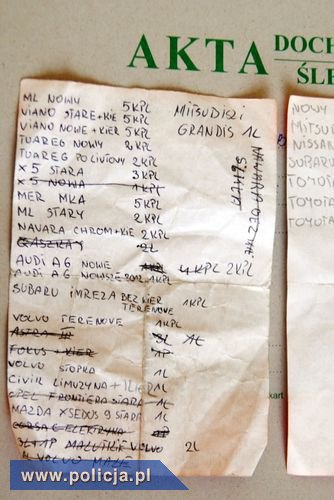 AKTA DOCH
ŚLE
ML NOWY 5KPL
VIANO STARE+KIE 5KPL
VIANO NOWE+KIER 5KPL
TUAREG NOWY 2KPL
TUAREG POLIVTOWY 2KPL
X5 STARA 3KPL
X5 NOWA 1KPL
MER MLA 5KPL
ML STARY 2KPL
NAVARA CHROM+KIE 2KPL
2L
AUDI A6 NOWE 4KPL 2KPL
AUDI A6 NOWSZE 2012 1KPL
SUBARU IMREZA BEZ KIER 1KPL
TERENOVE
VOLVO TERENOVE 1KPL
ASTRA III 3L 1L
FOKUS+KIER 1P
VOLVO STOPKA 1L
CIVIK LIMUZYNA+KIER 1L
OPEL FRONTIERA STARA 1L
MAZDA XSEDOS 9 STARA 1L
CORSA C ELEKTRYKA 1P
VOLVO 2L
VOLVO MAŁE
MITSUDISI
GRANDIS 1L
NOWY
MITSU
NISSAN
SUBARU
TOYOTA
TOYOTA
TOYOTA
www.policja.pl